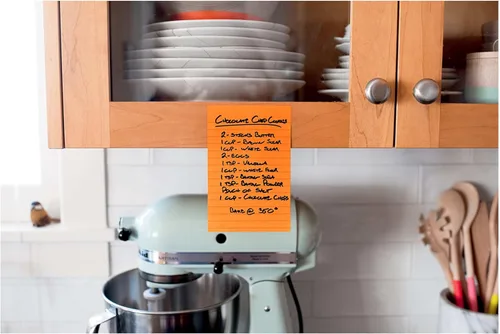 Chocolate Chip Cookies
2 - Sticks Butter
1 cup - Brown Sugar
1 cup - White Sugar
2 - Eggs
1 tsp - Vanilla
1 cup - White Flour
1 tsp - Baking Soda
1 tsp - Baking Powder
Pinch of Salt
1 cup - Chocolate Chips
Bake @ 350°